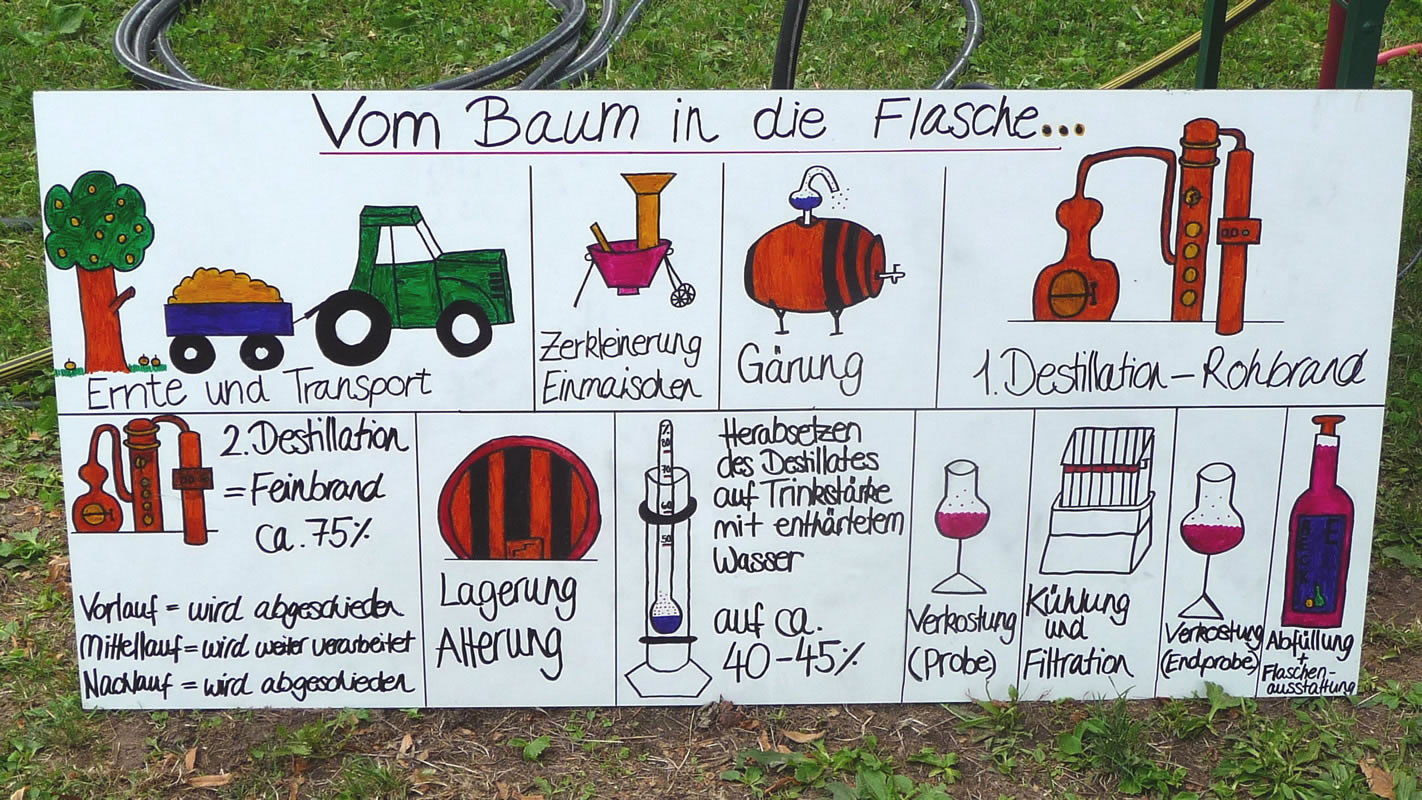 Vom Baum in die Flasche...
Ernte und Transport
Zerkleinerung
Einmaischen
Gärung
1. Destillation - Rohbrand
2. Destillation
= Feinbrand
ca. 75%
Vorlauf = wird abgeschieden
Mittellauf = wird weiter verarbeitet
Nachlauf = wird abgeschieden
Lagerung
Alterung
%
80
70
60
50
Herabsetzen
des Destillates
auf Trinkstärke
mit enthärtetem
Wasser
auf ca.
40-45%
Verkostung
(Probe)
Kühlung
und
Filtration
Verkostung
(Endprobe)
Abfüllung
+
Flaschen-
ausstattung